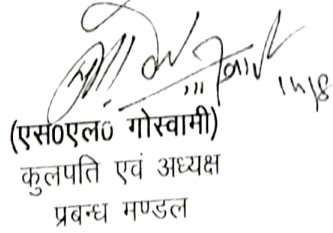 14/8
(एस0एल0 गोस्वामी)
कुलपति एवं अध्यक्ष
प्रबन्ध मण्डल